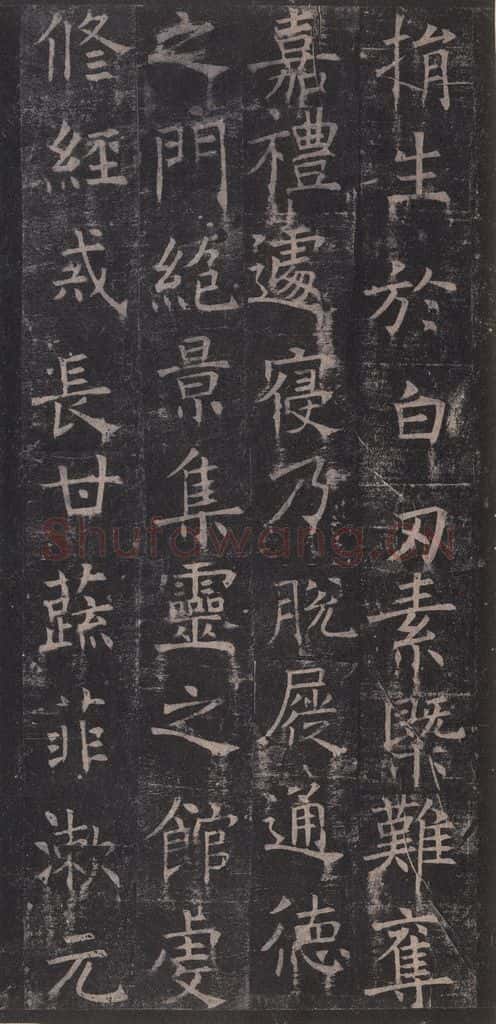 捐生於白刃素槩難奪
嘉禮遽寢乃脫屣通德
之門絶景集靈之館虔
修經戒長甘蔬菲漱元
Shufawang.cn